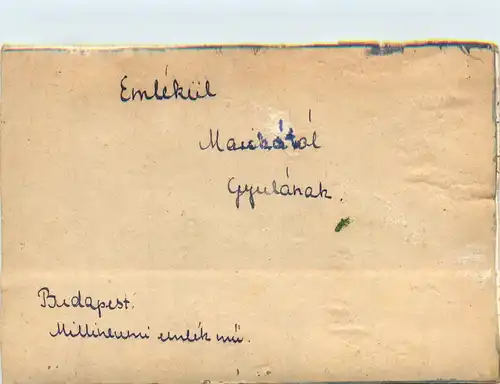 Emlékül
Mackától
Gyulának.
Budapest.
Millineumi emlék mű.